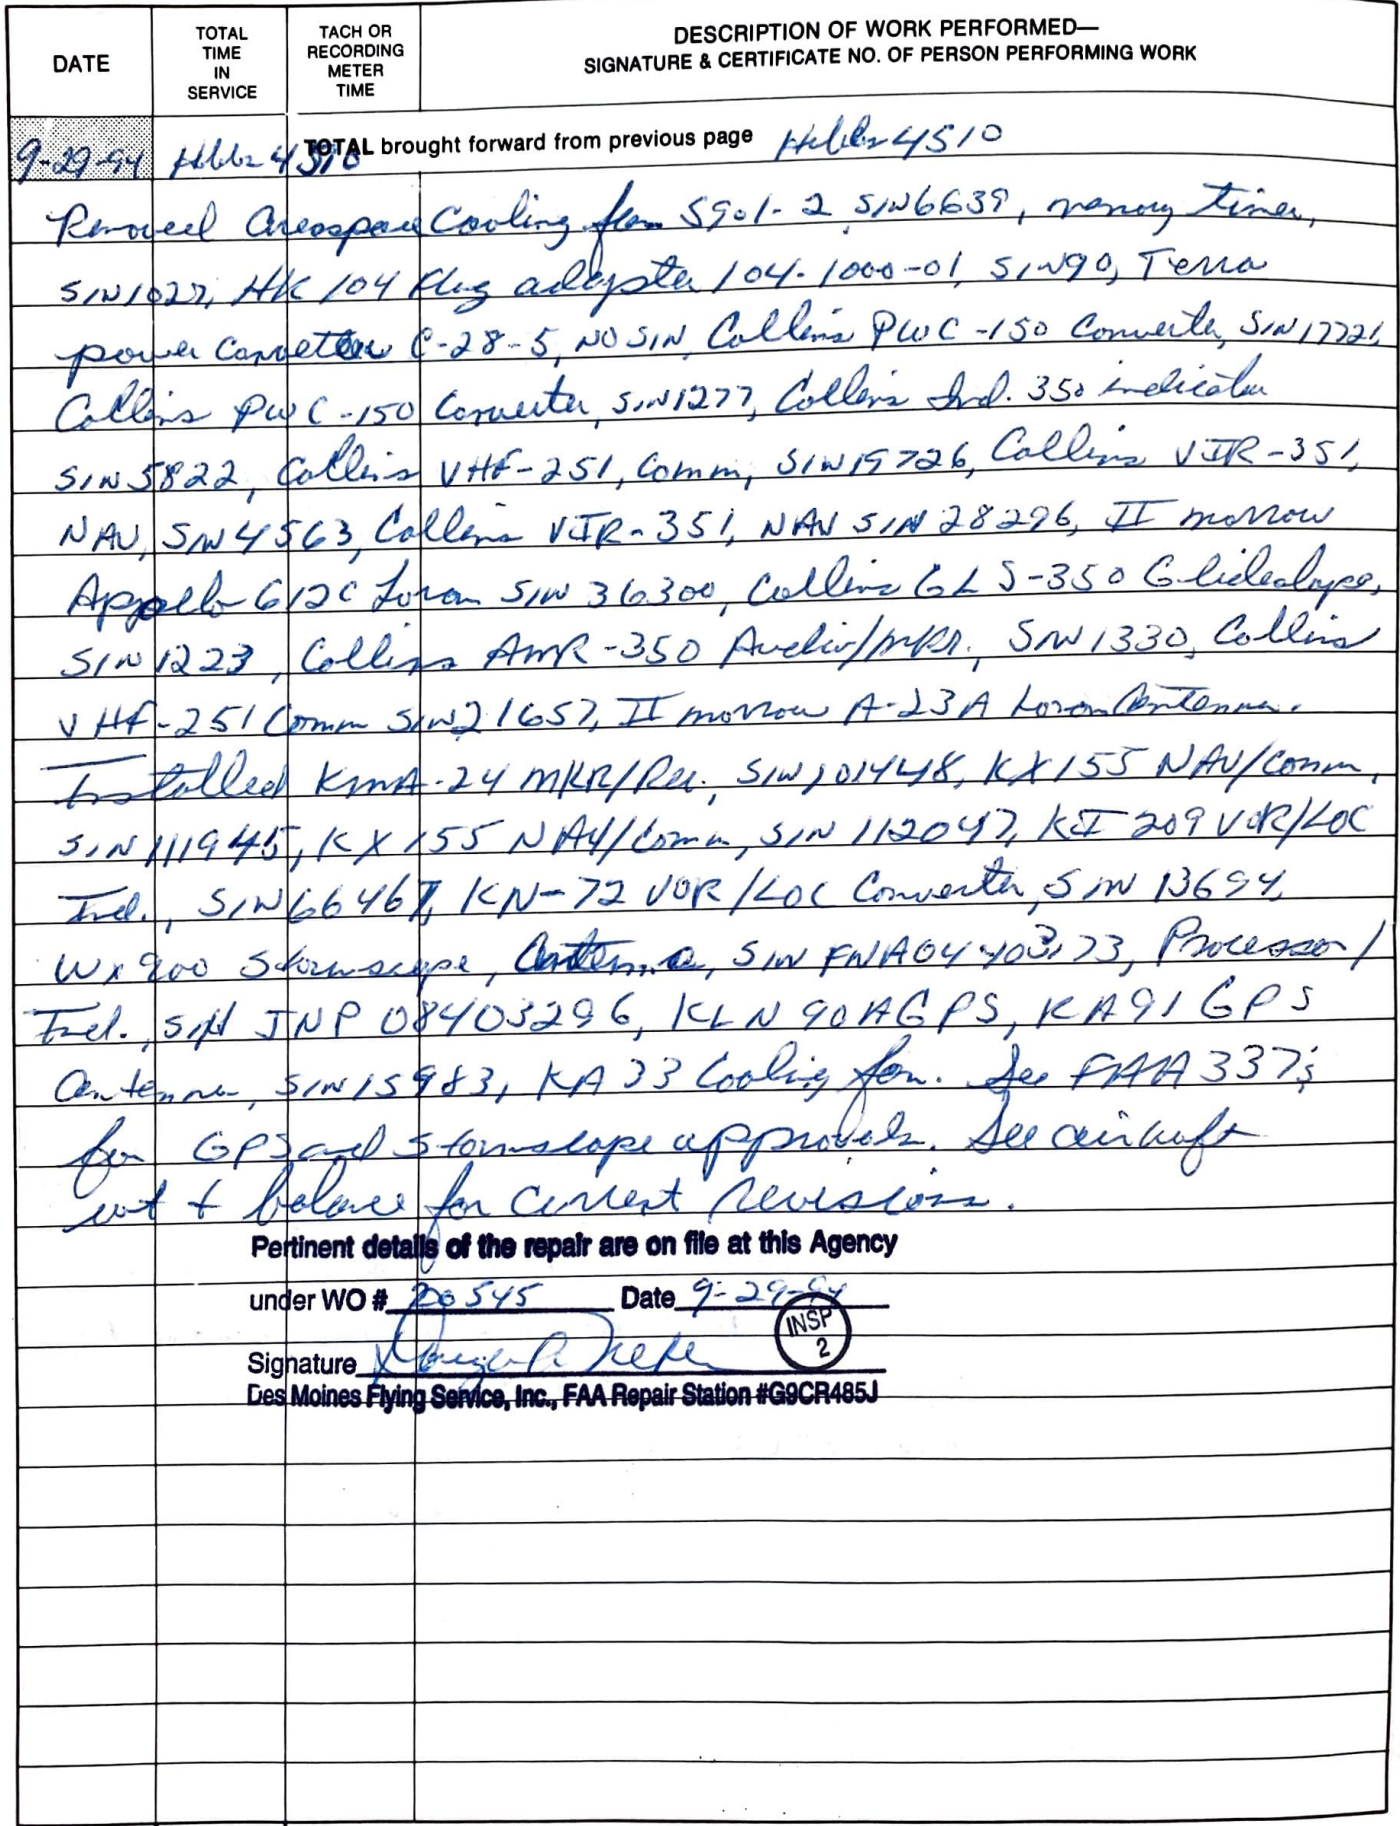 DATE
TOTAL TIME IN SERVICE
TACH OR RECORDING METER TIME
DESCRIPTION OF WORK PERFORMED—
SIGNATURE & CERTIFICATE NO. OF PERSON PERFORMING WORK
9-29-94 Hobbs 4510 TOTAL brought forward from previous page Hobbs 4510
Removed Areospace Cooling fan S901-2 S/N6639, timer,
S/N1027, HK 104 Plug adapter 104-1000-01, S/N90, Terra
power converter C-28-5, NO S/N, Collins PWC-150 Converter, S/N17721,
Collins PWC-150 Converter, S/N1277, Collins Ind. 350 indicator
S/N5822, Collins VHF-251, Comm, S/N19726, Collins VIR-351,
NAV, S/N4563, Collins VIR-351, NAV S/N28296, II morrow
Appollo 612C Loran S/N 36300, Collins GLS-350 Glideslope,
S/N1223, Collins AMR-350 Audio/mkr., S/N1330, Collins
VHF-251 Comm S/N21657, II morrow A-23A Loran Antenna.
Installed KMA-24 MKR/Rec., S/N101448, KX155 NAV/Comm,
S/N111945, KX155 NAV/Comm, S/N 112047, KI 209 VOR/LOC
Ind., S/N66467, KN-72 VOR/LOC Converter, S/N 13694,
Wx900 Stormscope, Antenna, S/N FNA04403173, Processor/
Ind., S/N JNP 08403296, KLN 90A GPS, KA91 GPS
Antenna, S/N15983, KA33 Cooling fan. See FAA 337's
for GPS and Stormscope approvals. See aircraft
wt + balance for current revisions.
Pertinent details of the repair are on file at this Agency
under WO # 20545 Date 9-29-94
Signature
INSP 2
Des Moines Flying Service, Inc., FAA Repair Station #G9CR485J